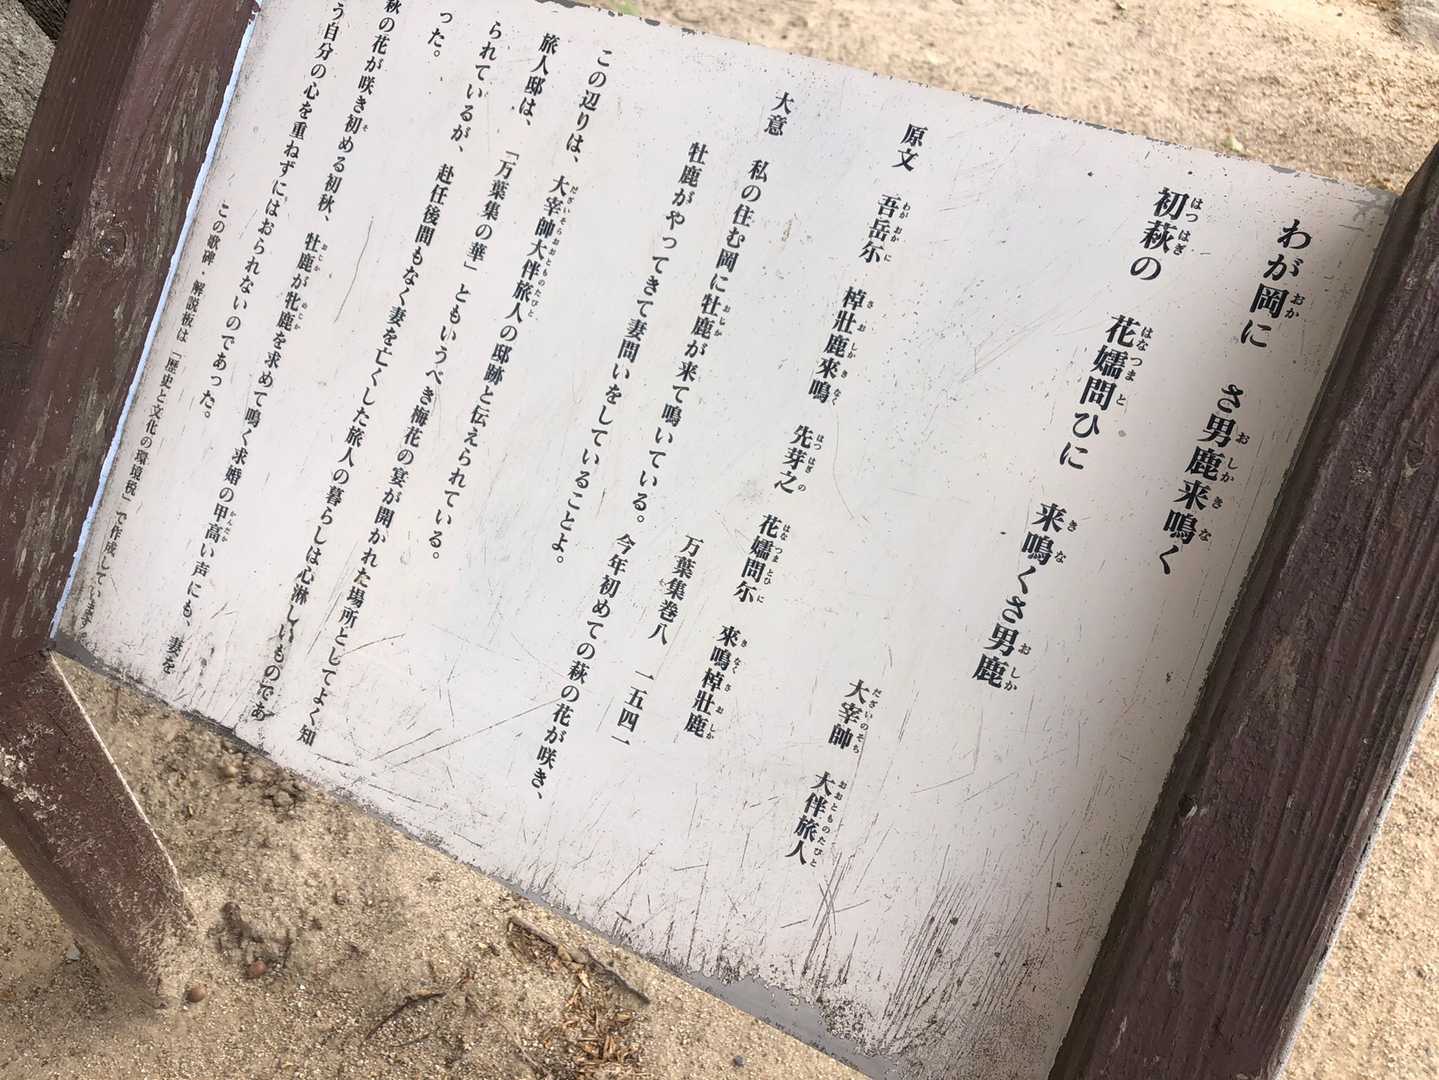 わが岡に　さ男鹿来鳴く
初萩の　花嬬問ひに　来鳴くさ男鹿
大宰帥　大伴旅人
原文　吾岳尓　棹壮鹿来鳴　先芽之　花嬬問尓　来鳴棹壮鹿
万葉集巻八　一五四一
大意　私の住む岡に牡鹿が来て鳴いている。今年初めての萩の花が咲き、
牡鹿がやってきて妻問いをしていることよ。
この辺りは、大宰帥大伴旅人の邸跡と伝えられている。
旅人邸は、「万葉集の華」ともいうべき梅花の宴が開かれた場所としてよく知
られているが、赴任後間もなく妻を亡くした旅人の暮らしは心淋しいものであ
った。
萩の花が咲き初める初秋、牡鹿が牝鹿を求めて鳴く求婚の甲高い声にも、妻を
う自分の心を重ねずにはおられないのであった。
この歌碑・解説板は「歴史と文化の環境税」で作成しています。